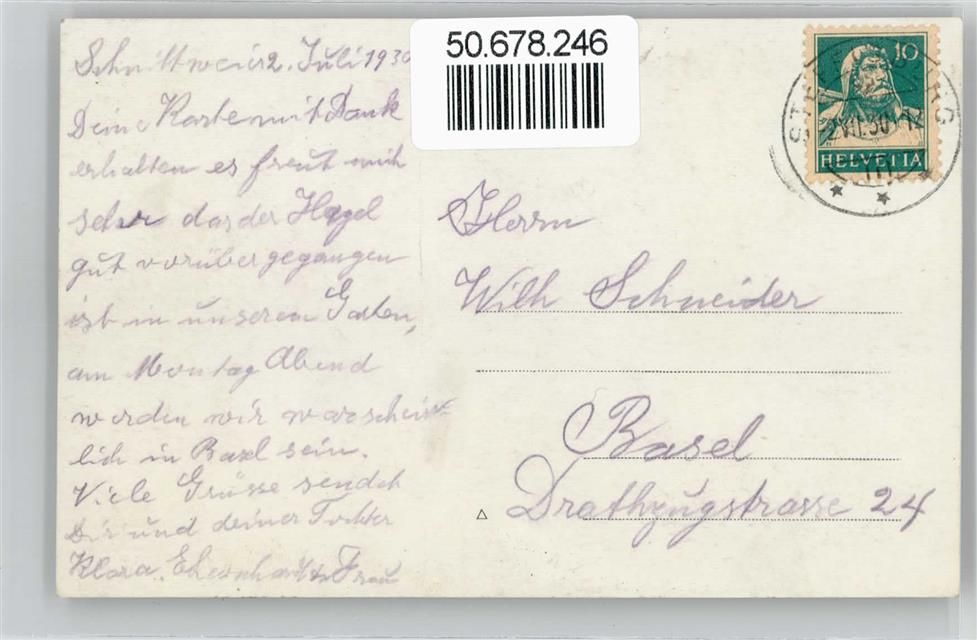 50.678.246
Schnittweier 2. Juli 1930
Deine Karte mit Dank
erhalten es freut mich
sehr das der Hagel
gut vorüber gegangen
ist in unserem Garten,
am Montag Abend
werden wir warschein-
lich in Basel sein.
Viele Grüsse sendet
Dir und deiner Tochter
Klara. & Frau
10
HELVETIA
Herrn
Wilh Schneider
Basel
Drathzugstrasse 24